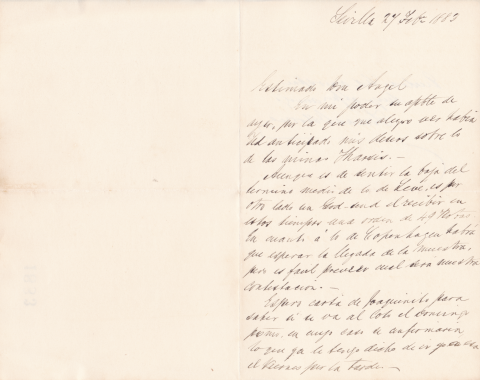 Sevilla 27 Feb 1883
Estimado Don Angel
En mi poder su aptble de
ayer, por la que me alegro ver habia
Vd anticipado mis deseos sobre lo
de las minas Tharsis.—
Aunque es de sentir la baja del
termino medio de lo de es por
otro lado un God-send el recibir en
estos tiempos una orden de
En cuanto á lo de Copenhagen habrá
que esperar la llegada de la muestra,
pero es facil preveer cual sera nuestra
contestacion.—
Espero carta de Joaquinito para
saber si se va al Coto el Domingo
proximo en cuyo caso se confirmaria
lo que ya le tengo dicho de
el Viernes por la tarde—